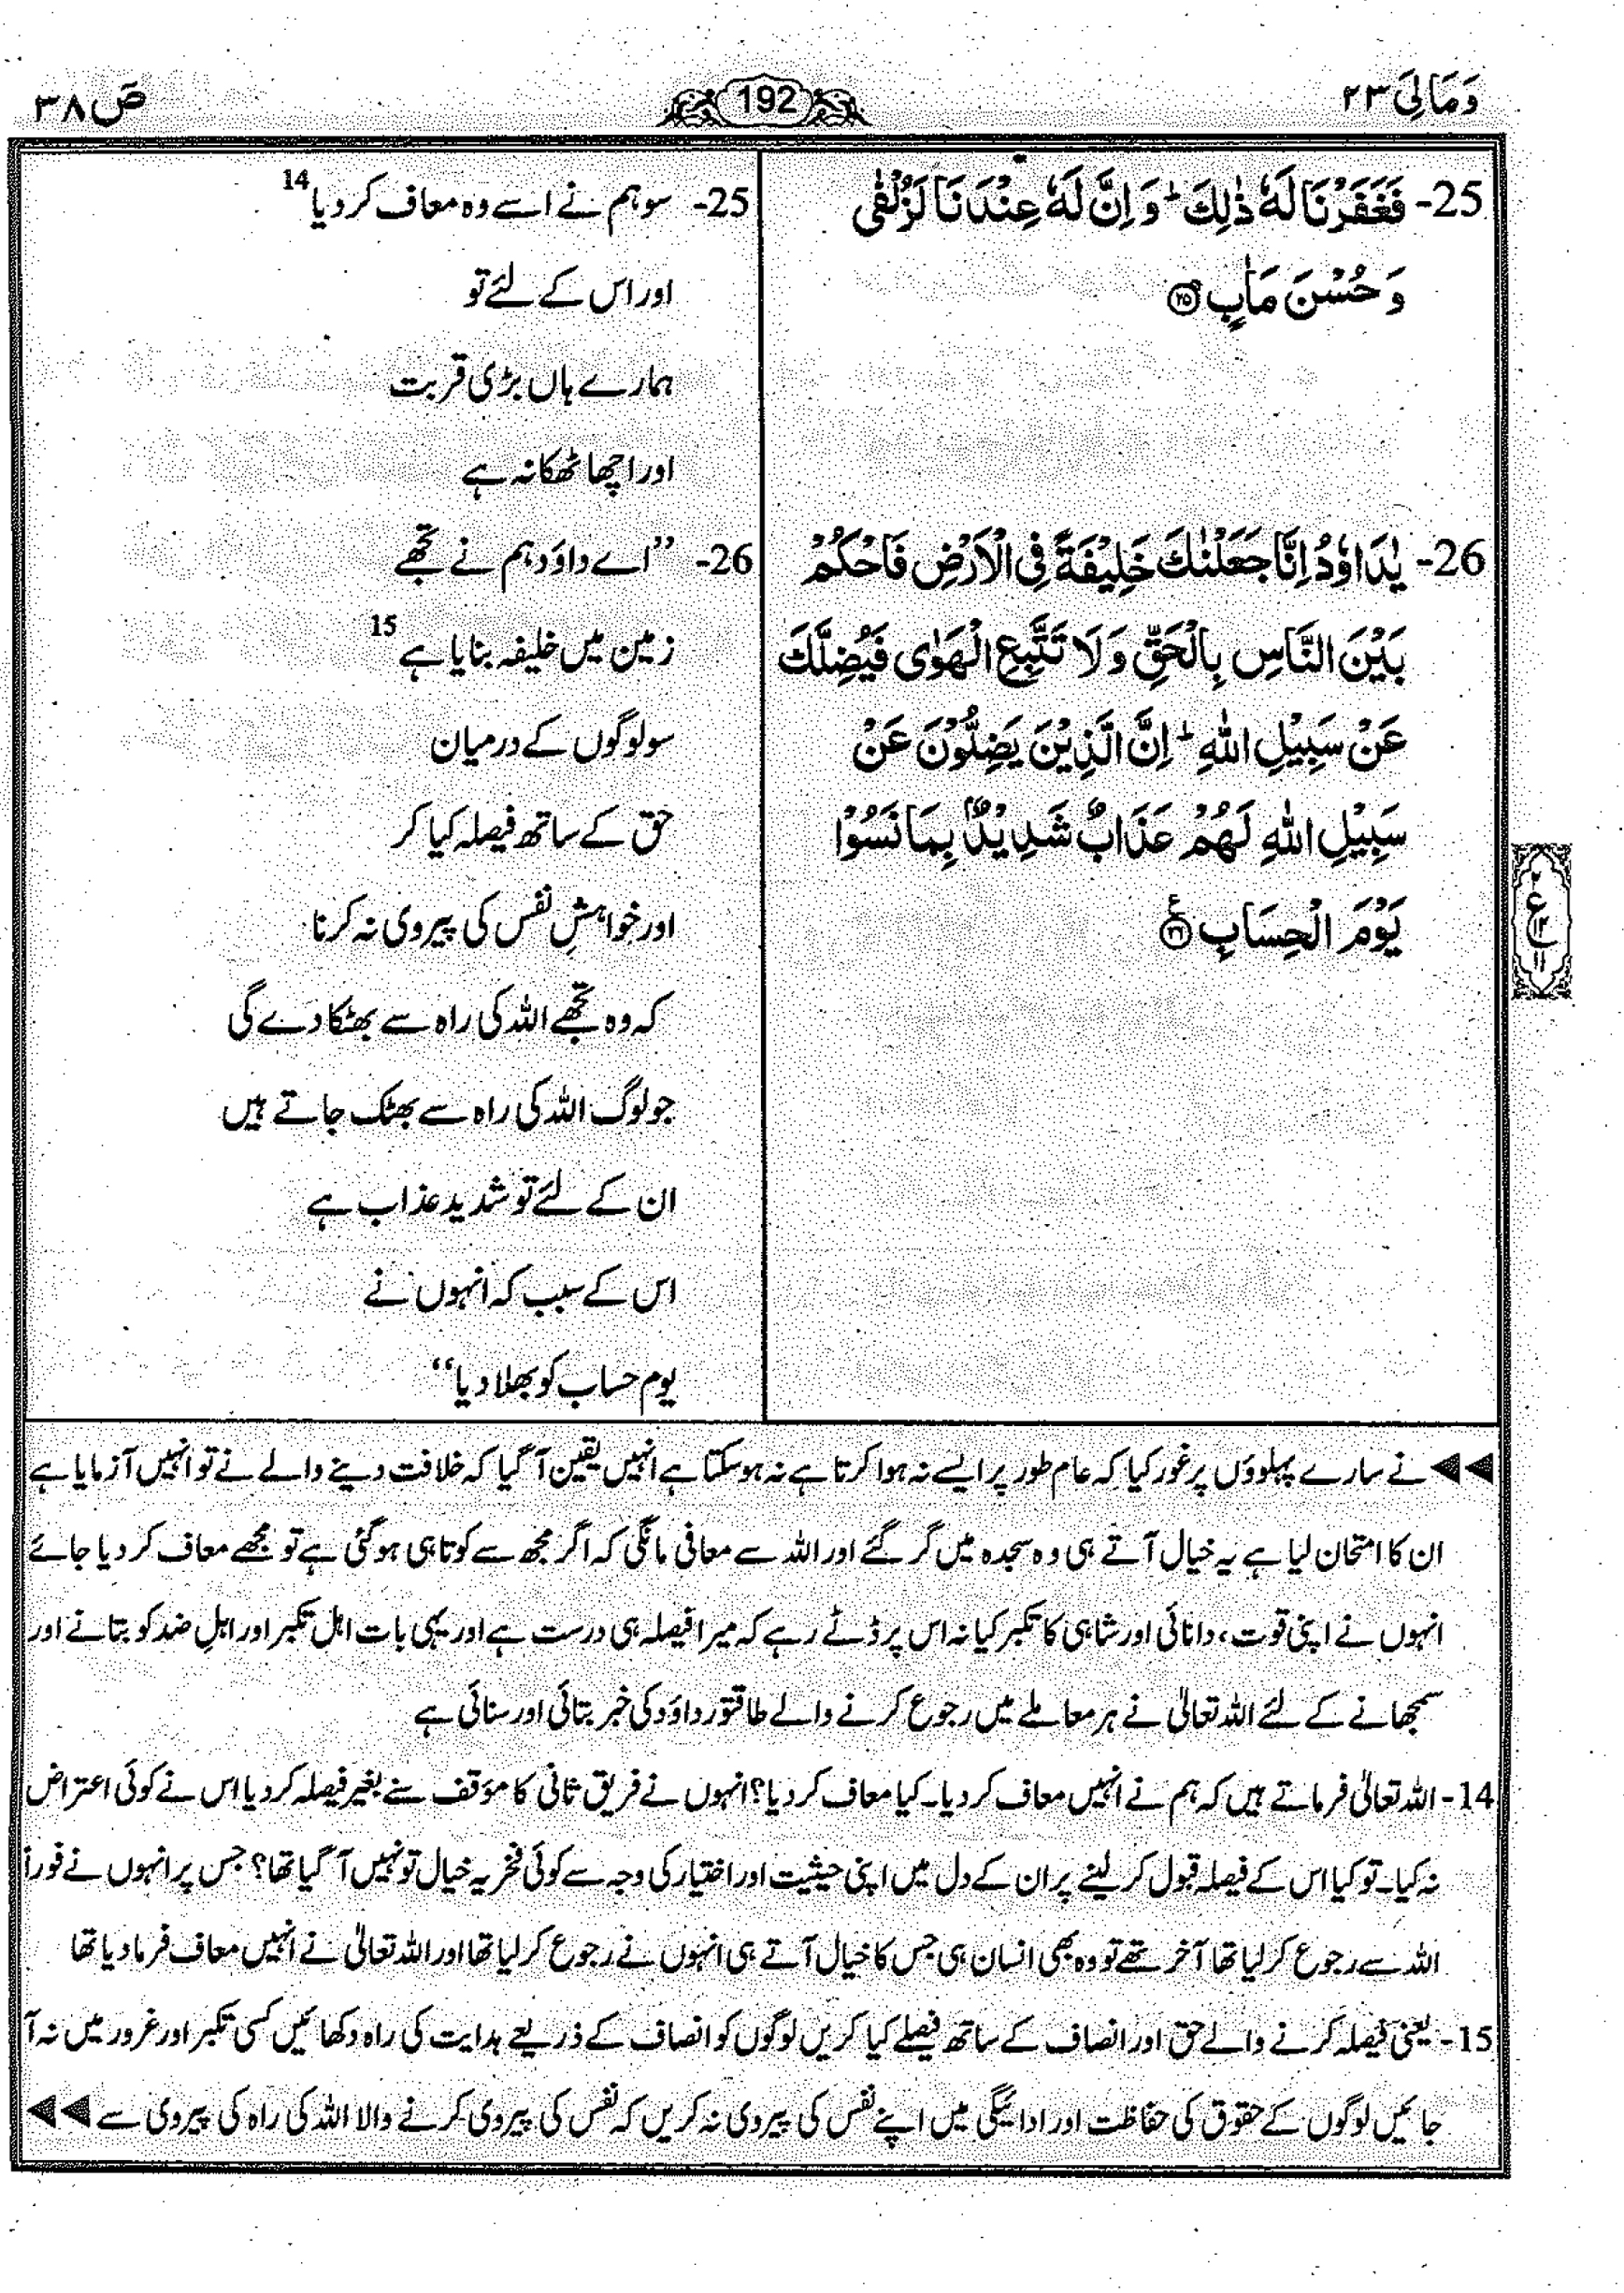 وَمَالِيَ ۲۳
192
صٓ ۳۸
25- فَغَفَرْنَا لَهٗ ذٰلِكَ ؕ وَ اِنَّ لَهٗ عِنْدَنَا لَزُلْفٰى
وَ حُسْنَ مَاٰبٍ ۝۲۵
26- يٰدَاوٗدُ اِنَّا جَعَلْنٰكَ خَلِيْفَةً فِي الْاَرْضِ فَاحْكُمْ
بَيْنَ النَّاسِ بِالْحَقِّ وَ لَا تَتَّبِعِ الْهَوٰى فَيُضِلَّكَ
عَنْ سَبِيْلِ اللّٰهِ ؕ اِنَّ الَّذِيْنَ يَضِلُّوْنَ عَنْ
سَبِيْلِ اللّٰهِ لَهُمْ عَذَابٌ شَدِيْدٌۢ بِمَا نَسُوْا
يَوْمَ الْحِسَابِ ۝۲۶ ع
۲
ع
۱۲
۱۱
25- سو ہم نے اسے وہ معاف کر دیا 14
اور اس کے لئے تو
ہمارے ہاں بڑی قربت
اور اچھا ٹھکانہ ہے
26- ’’اے داؤد ہم نے تجھے
زمین میں خلیفہ بنایا ہے 15
سو لوگوں کے درمیان
حق کے ساتھ فیصلہ کیا کر
اور خواہشِ نفس کی پیروی نہ کرنا
کہ وہ تجھے اللہ کی راہ سے بھٹکا دے گی
جو لوگ اللہ کی راہ سے بھٹک جاتے ہیں
ان کے لئے تو شدید عذاب ہے
اس کے سبب کہ انہوں نے
یوم حساب کو بھلا دیا‘‘
◄◄ نے سارے پہلوؤں پر غور کیا کہ عام طور پر ایسے نہ ہوا کرتا ہے نہ ہو سکتا ہے انہیں یقین آ گیا کہ خلافت دینے والے نے تو انہیں آزمایا ہے
ان کا امتحان لیا ہے یہ خیال آتے ہی وہ سجدہ میں گر گئے اور اللہ سے معافی مانگی کہ اگر مجھ سے کوتاہی ہو گئی ہے تو مجھے معاف کر دیا جائے
انہوں نے اپنی قوت، دانائی اور شاہی کا تکبر کیا نہ اس پر ڈٹے رہے کہ میرا فیصلہ ہی درست ہے اور یہی بات اہل تکبر اور اہلِ ضد کو بتانے اور
سمجھانے کے لئے اللہ تعالیٰ نے ہر معاملے میں رجوع کرنے والے طاقتور داؤد کی خبر بتائی اور سنائی ہے
14- اللہ تعالیٰ فرماتے ہیں کہ ہم نے انہیں معاف کر دیا۔ کیا معاف کر دیا؟ انہوں نے فریق ثانی کا مؤقف سنے بغیر فیصلہ کر دیا اس نے کوئی اعتراض
نہ کیا۔ تو کیا اس کے فیصلہ قبول کر لینے پر ان کے دل میں اپنی حیثیت اور اختیار کی وجہ سے کوئی فخریہ خیال تو نہیں آ گیا تھا؟ جس پر انہوں نے فوراً
اللہ سے رجوع کر لیا تھا آخر تھے تو وہ بھی انسان ہی جس کا خیال آتے ہی انہوں نے رجوع کر لیا تھا اور اللہ تعالیٰ نے انہیں معاف فرما دیا تھا
15- یعنی فیصلہ کرنے والے حق اور انصاف کے ساتھ فیصلے کیا کریں لوگوں کو انصاف کے ذریعے ہدایت کی راہ دکھائیں کسی تکبر اور غرور میں نہ آ
جائیں لوگوں کے حقوق کی حفاظت اور ادائیگی میں اپنے نفس کی پیروی نہ کریں کہ نفس کی پیروی کرنے والا اللہ کی راہ کی پیروی سے ◄◄